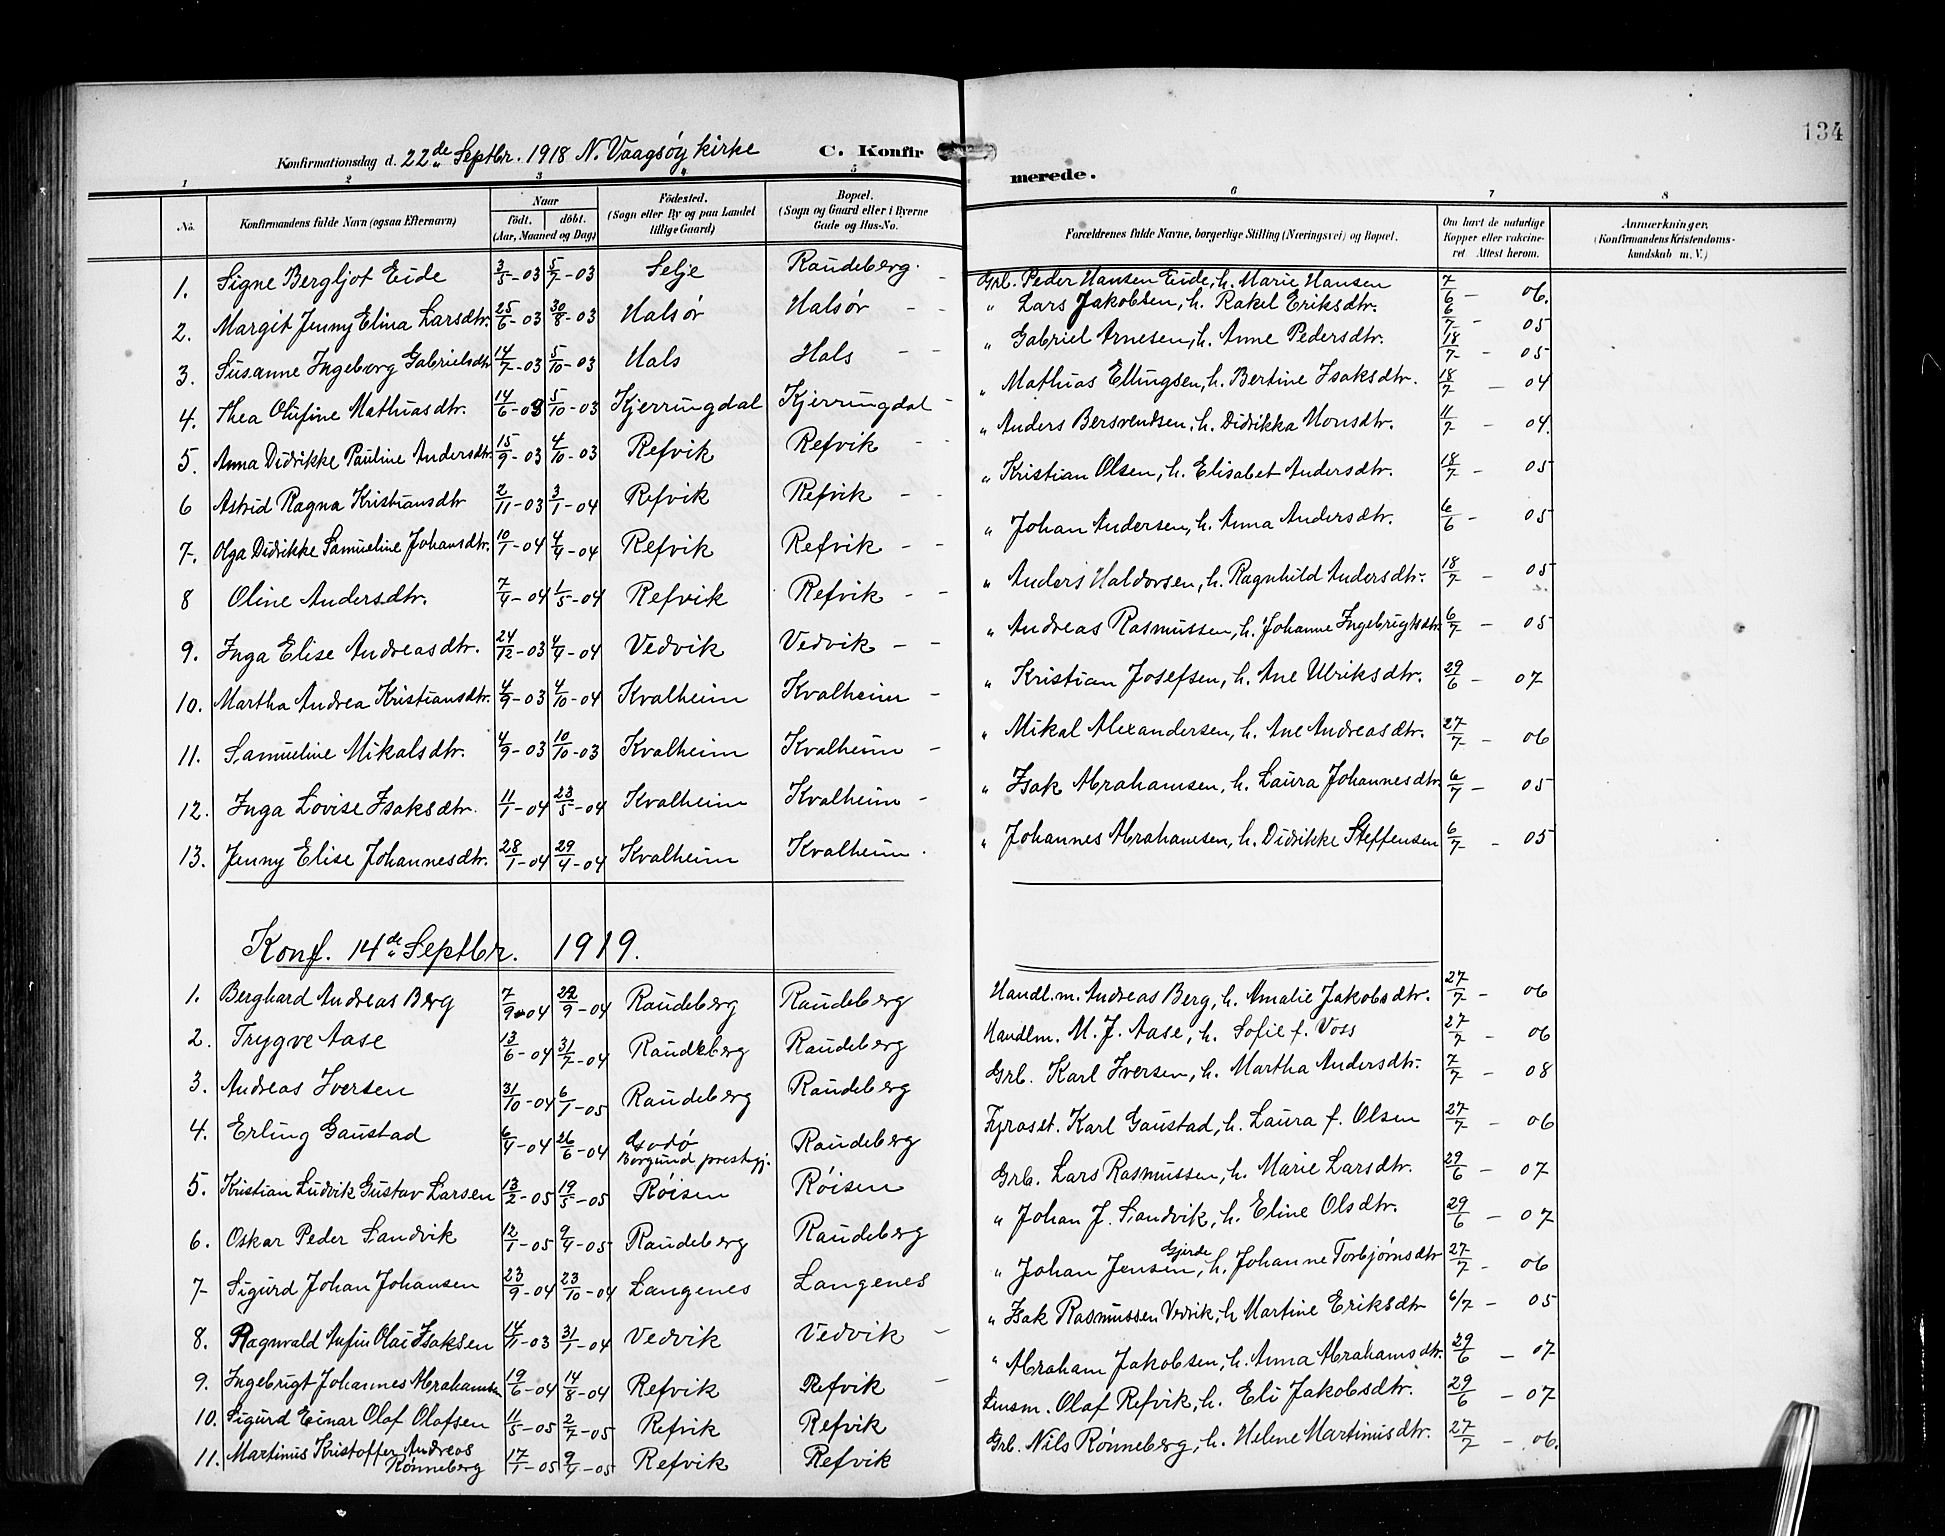 134
Konfirmationsdag d. 22de Septbr. 1918 N. Vaagsöy kirke C. Konfirmerede.
1 2 3 4 5 6 7 8
No. Konfirmandens fulde Navn (ogsaa Efternavn) Naar födt. döbt. (Aar, Maaned og Dag) Födested. (Sogn eller By og paa Landet tillige Gaard) Bopæl. (Sogn og Gaard eller i Byerne Gade og Hus-No. Forældrenes fulde Navne, borgerlige Stilling (Næringsvei) og Bopæl. Om havt de naturlige Kopper eller vakcineret. Attest herom. Anmærkninger. (Konfirmandens Kristendomskundskab m. V.)
1. Signe Bergljot Eide 3/5-03 5/7-03 Selje Raudeberg. - Grb. Peder Hansen Eide, h. Marie Hansen 7/6 - 06.
2. Margit Jenny Elina Larsdtr. 25/6-03 30/8-03 Halsør Halsør - - " Lars Jakobsen, h. Rakel Eriksdtr. 6/7 - 05
3. Susanne Ingeborg Gabrielsdtr 14/7-03 5/10-03 Hals Hals - - " Gabriel Arnesen, h. Anne Pedersdtr. 18/7 - 05
4. Thea Olufine Mathiasdtr. 14/6-03 5/10-03 Kjerringdal Kjerringdal - " Mathias Ellingsen, h. Bertine Isaksdtr. 18/7 - 04
5. Anna Didrikke Pauline Andersdtr 15/9-03 4/10-03 Refvik Refvik - - " Anders Bersvendsen, h. Didrikka Monsdtr. 11/7 - 04.
6 Astrid Ragna Kristiansdtr 2/11-03 3/1-04 Refvik Refvik - - " Kristian Olsen, h. Elisabet Andersdtr. 18/7 - 05
7. Olga Didrikke Samueline Johansdtr. 10/1-04 4/4-04 Refvik Refvik - - " Johan Andersen, h. Anna Andersdtr. 6/6 - 05
8 Oline Andersdtr. 7/4-04 1/5-04 Refvik Refvik - - " Anders Haldorsen, h. Ragnhild Andersdtr. 18/7 - 05
9. Inga Elise Andreasdtr. 24/12-03 4/4-04 Vedvik Vedvik - - " Andreas Rasmussen, h. Johanne Ingebrigtsdtr. 6/7 - 05
10. Martha Andrea Kristiansdtr. 4/9-03 4/10-04 Kvalheim Kvalheim - " Kristian Josefsen, h. Ane Ulriksdtr. 29/6 - 07
11. Samueline Mikalsdtr. 4/9-03 10/10-03 Kvalheim Kvalheim - " Mikal Alexandersen, h. Ane Andreasdtr. 27/7 - 06
12. Inga Lovise Isaksdtr. 11/1-04 23/5-04 Kvalheim Kvalheim - " Isak Abrahamsen, h. Laura Johannesdtr. 6/7 - 05
13. Jenny Elise Johannesdtr. 28/1-04 29/4-04 Kvalheim Kvalheim. " Johannes Abrahamsen, h. Didrikke Steffensen 6/7 - 05
Konf. 14de Septbr. 1919.
1. Berghard Andreas Berg 7/9-04 29/9-04 Raudeberg Raudeberg Handl.m. Andreas Berg, h. Amalie Jakobsdtr. 27/7 - 06
2. Trygve Aase 13/6-04 31/7-04 Raudeberg Raudeberg Handlm. M. J. Aase, h. Sofie f. Voss 27/7 - 06
3. Andreas Iversen 31/10-04 6/1-05 Raudeberg Raudeberg Grb. Karl Iversen, h. Martha Andersdtr. 7/7 - 08
4. Erling Gaustad 6/4-04 26/6-04 Godö Borgund prestgj. Raudeberg Fyrass t. Karl Gaustad, h. Laura f. Olsen 27/7 - 06
5. Kristian Ludvik Gustav Larsen 13/2-05 19/5-05 Röisen Röisen Grb. Lars Rasmussen, h. Marie Larsdtr. 29/6 - 07
6. Oskar Peder Sandvik 12/1-05 9/4-05 Raudeberg Raudeberg " Johan J. Sandvik, h. Eline Olsdtr. 29/6 - 07
7- Sigurd Johan Johansen 23/9-04 23/10-04 Langenes Langenes " Johan Jensen Gjerde, h. Johanne Torbjørnsdtr 27/7 - 06
8. Ragnvald Anfin Olai Isaksen 14/11-03 31/1-04 Vedvik Vedvik - " Isak Rasmussen Vedvik, h Martine Eriksdtr 6/7 - 05
9. Ingebrigt Johannes Abrahamsen 19/6-04 14/8-04 Refvik Refvik - " Abraham Jakobsen, h. Anna Abrahamsdtr. 29/6 - 07
10. Sigurd Einar Olaf Olafsen 11/5-05 2/7-05 Refvik Refvik Lensm. Olaf Refvik, h. Eli Jakobsdtr. 29/6 - 07
11. Martinus Kristoffer Andreas Rönneberg 17/1-05 9/4-05 Refvik Refvik Grb. Nils Rönneberg, h. Helene Martinusdtr. 27/7 - 06.